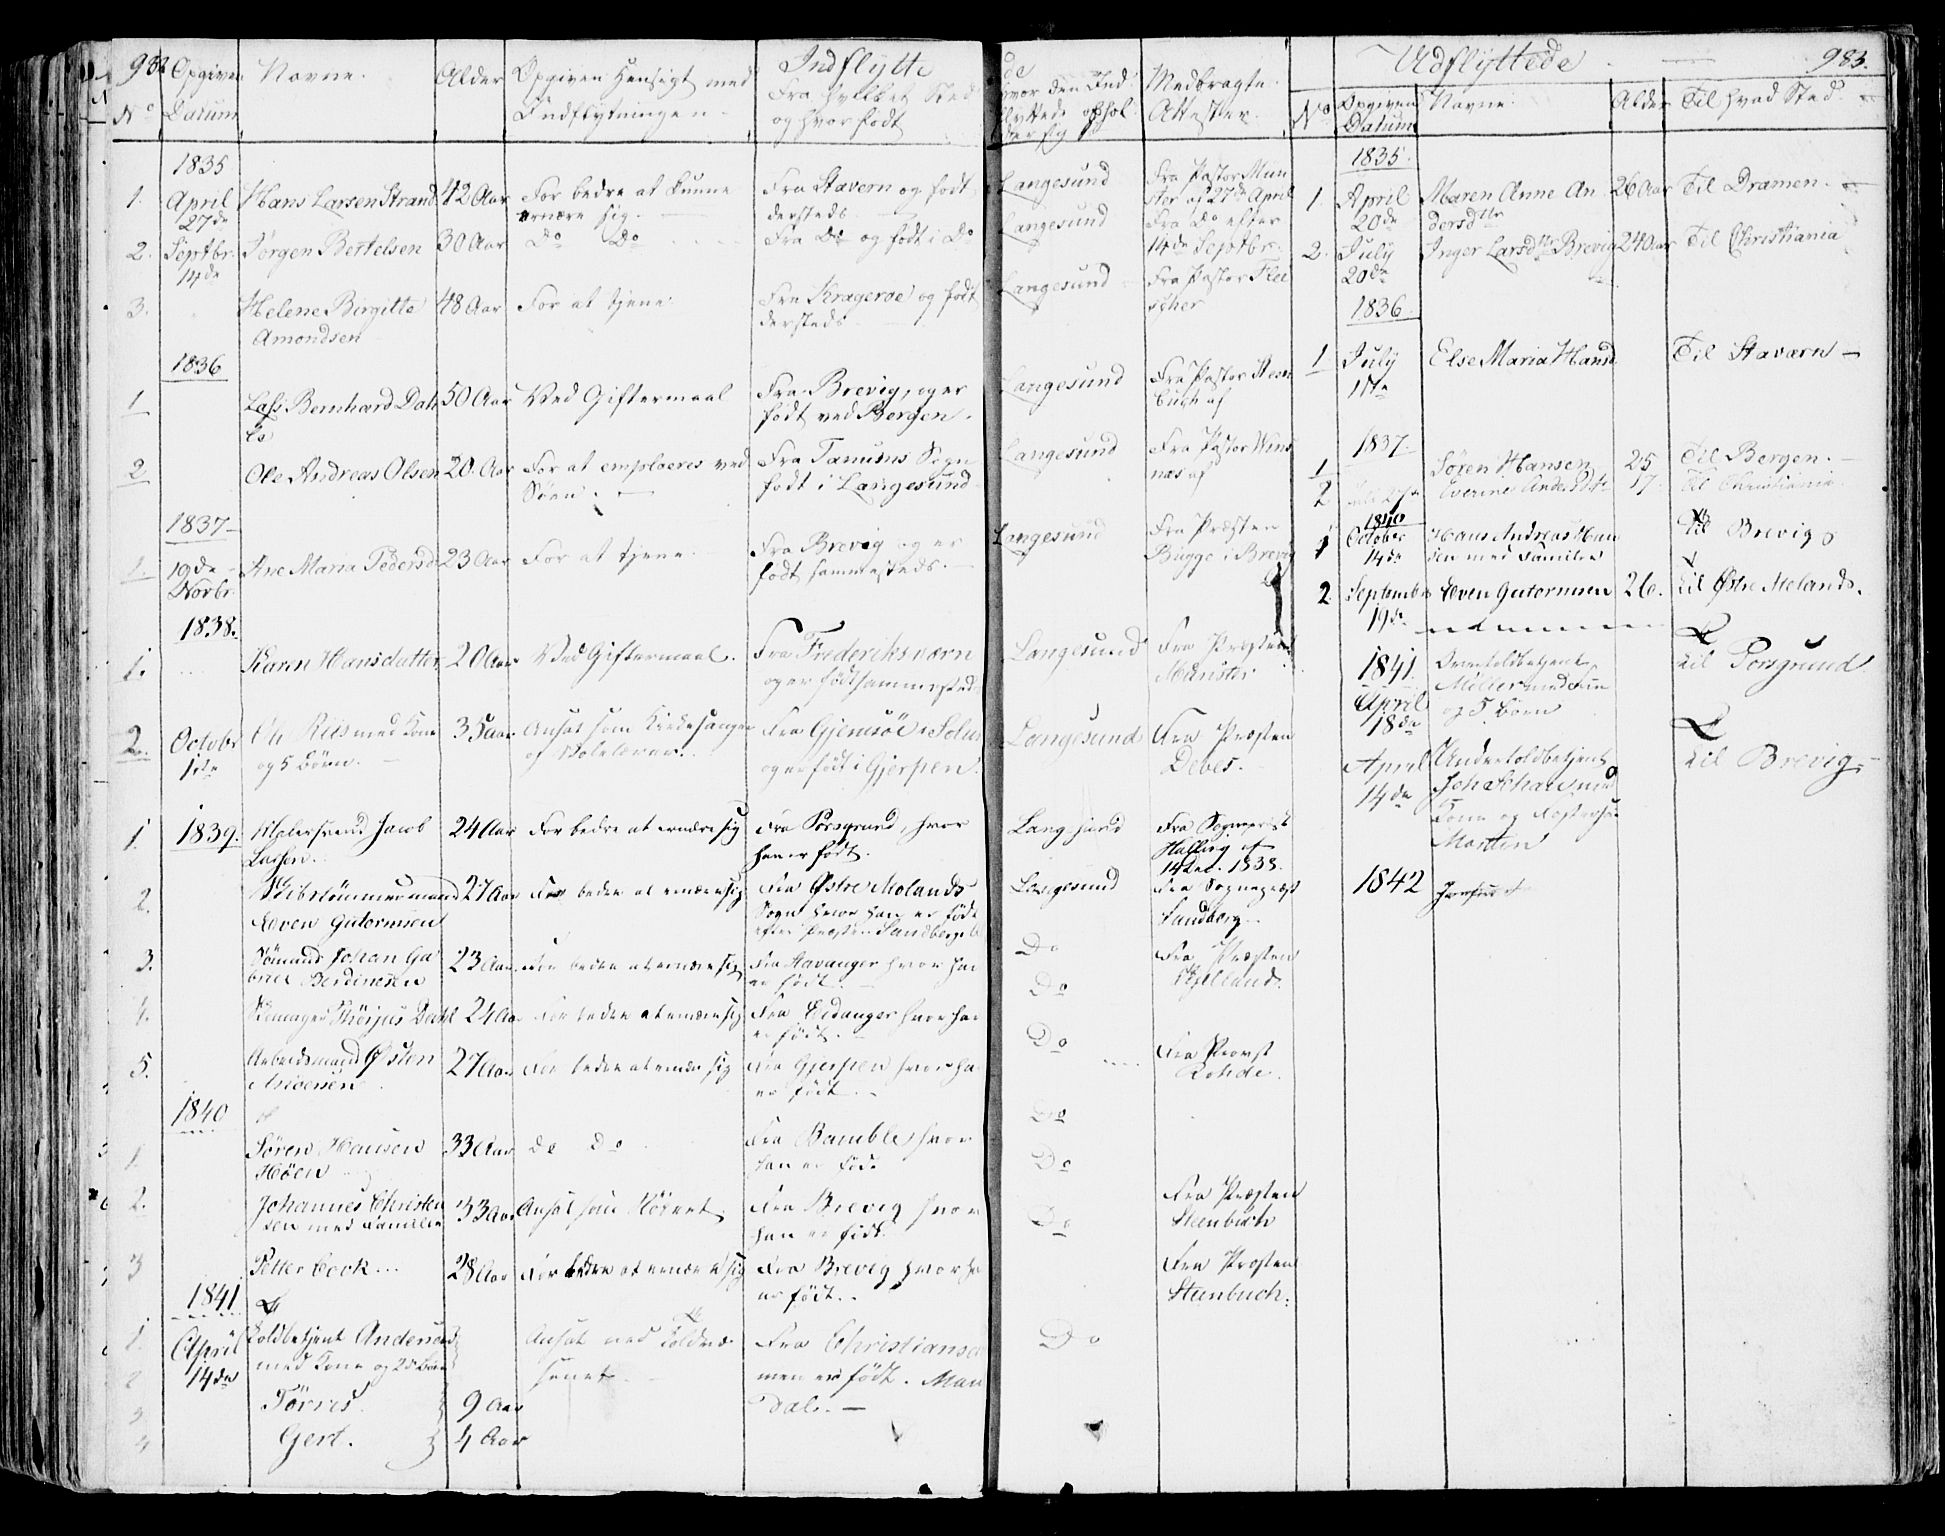 982
Indflytte
No
Opgiven Datum
Navne.
Alder
Opgiven Hensigt med
Indflytningen.
Fra hvilket Sted
og hvor født
de
hvor den Ind
flyttede ophol
der sig
Medbragte
Attester.
1835
1. April 27de Hans Larsen Strand 42 Aar For bedre at kunne Fra Stavern og født Langesund Fra Pastor Mün
ernære sig. dersteds ster af 27de April
2. Septbr. 14de Jørgen Bertelsen 30 Aar Do Do Fra Do og født i Do Langesund Fra Do efter
14de Septbr.
3. Helene Birgitte 48 Aar For at tjene. Fra Krageröe og født Langesund Fra Pastor Flei
Amondsen dersteds scher
1836
1 Bernhard Dah 50 Aar Ved Giftermaal Fra Brevig, og er Langesund Fra Pastor Steen
le født ved Bergen. buch af
2 Ole Andreas Olsen 20 Aar For at emploeres ved Fra Tanums Sogn Langesund Fra Pastor
Søen. født i Langesund
1837
1. 19de Novbr. Ane Maria Pedersd 23 Aar For at tjene Fra Brevig og er Langesund Fra Præsten
født sammesteds. Bugge i Brevig
1838.
1. Karen Hansdatter 20 Aar Ved Giftermaal. Fra Frederiksværn Langesund Fra Præsten
og er født sammesteds Münster
2. Octobr 1ste Riis med Kone 35 Aar Ansat som Kirkesanger Fra Gjemsöe Langesund Fra Præsten
og 5 Børn. og Skolelærer. og er født i Gjerpen. Debes.
1. 1839. Malersvend Jacob 24 Aar For bedre at ernære sig Fra Porsgrund, hvor Langesund Fra Sognepræst
Larsen. han er født.
14 Dec. 1838.
2. Skibstømmermand 27 Aar For bedre at ernære sig Fra Østre Molands Langesund Fra Sognepræst
Even Gutormsen Sogn hvor han er født Sandberg
efter Præsten Sandbergs
3. Sømand Johan Ga 23 Aar For bedre at ernære sig Fra Stavanger hvor han Do Fra Præsten
briel Berdinesen er født. Kjelland.
4. Skomager Dahl 24 Aar For bedre at ernære sig Fra Eidanger hvor han Do
er født.
5. Arbeidsmand Østen 27 Aar For bedre at ernære sig Fra Gjerpen hvor han Do Fra Provst
er født. Rohde.
1840
1. Søren Hansen 33 Aar do Do Fra Bamble hvor Do
Höen han er født
2. Johannes Christen 33 Aar Ansat som Fra Brevig hvor Do Fra Præsten
sen med Familie han er født. Steenbuch
3 Petter Cook 28 Aar For bedre at ernære sig Fra Brevig hvor han Do Fra Præsten
er født. Steenbuch.
1841
1. April 14de Toldbetjent Andersen Ansat ved Toldvæ Fra Christiansand Do
2 med Kone og 2de Børn senet. men er født. Man
3 Törres. 9 Aar dal.
4 Gert. 4 Aar
Udflyttede
983.
No
Opgiven Datum
Navne.
Alder
Til hvad Sted.
1835.
1. April 20de Maren Anne An 26 Aar Til Dramen.
dersdtr
2. July 20de Inger Larsdtr Brevig 24 Aar Til Christiania
1836.
1 July 11te Else Maria Hansd Til Staværn
1837.
1 Søren Hansen 25 Til Bergen.
2 Andersdtr 17 Til Christiania.
1840
1 October 14de Hans Andreas Han Til Brevig
sen med Familie
2 September 19de Even Gutormsen 26. til Østre Molands.
1841. April 18de Overtoldbetjent til Porsgrund
Müller med Kone
og 5 Børn
April 14de Undertoldbetjent til Brevig.
med
Kone og
Morten
1842